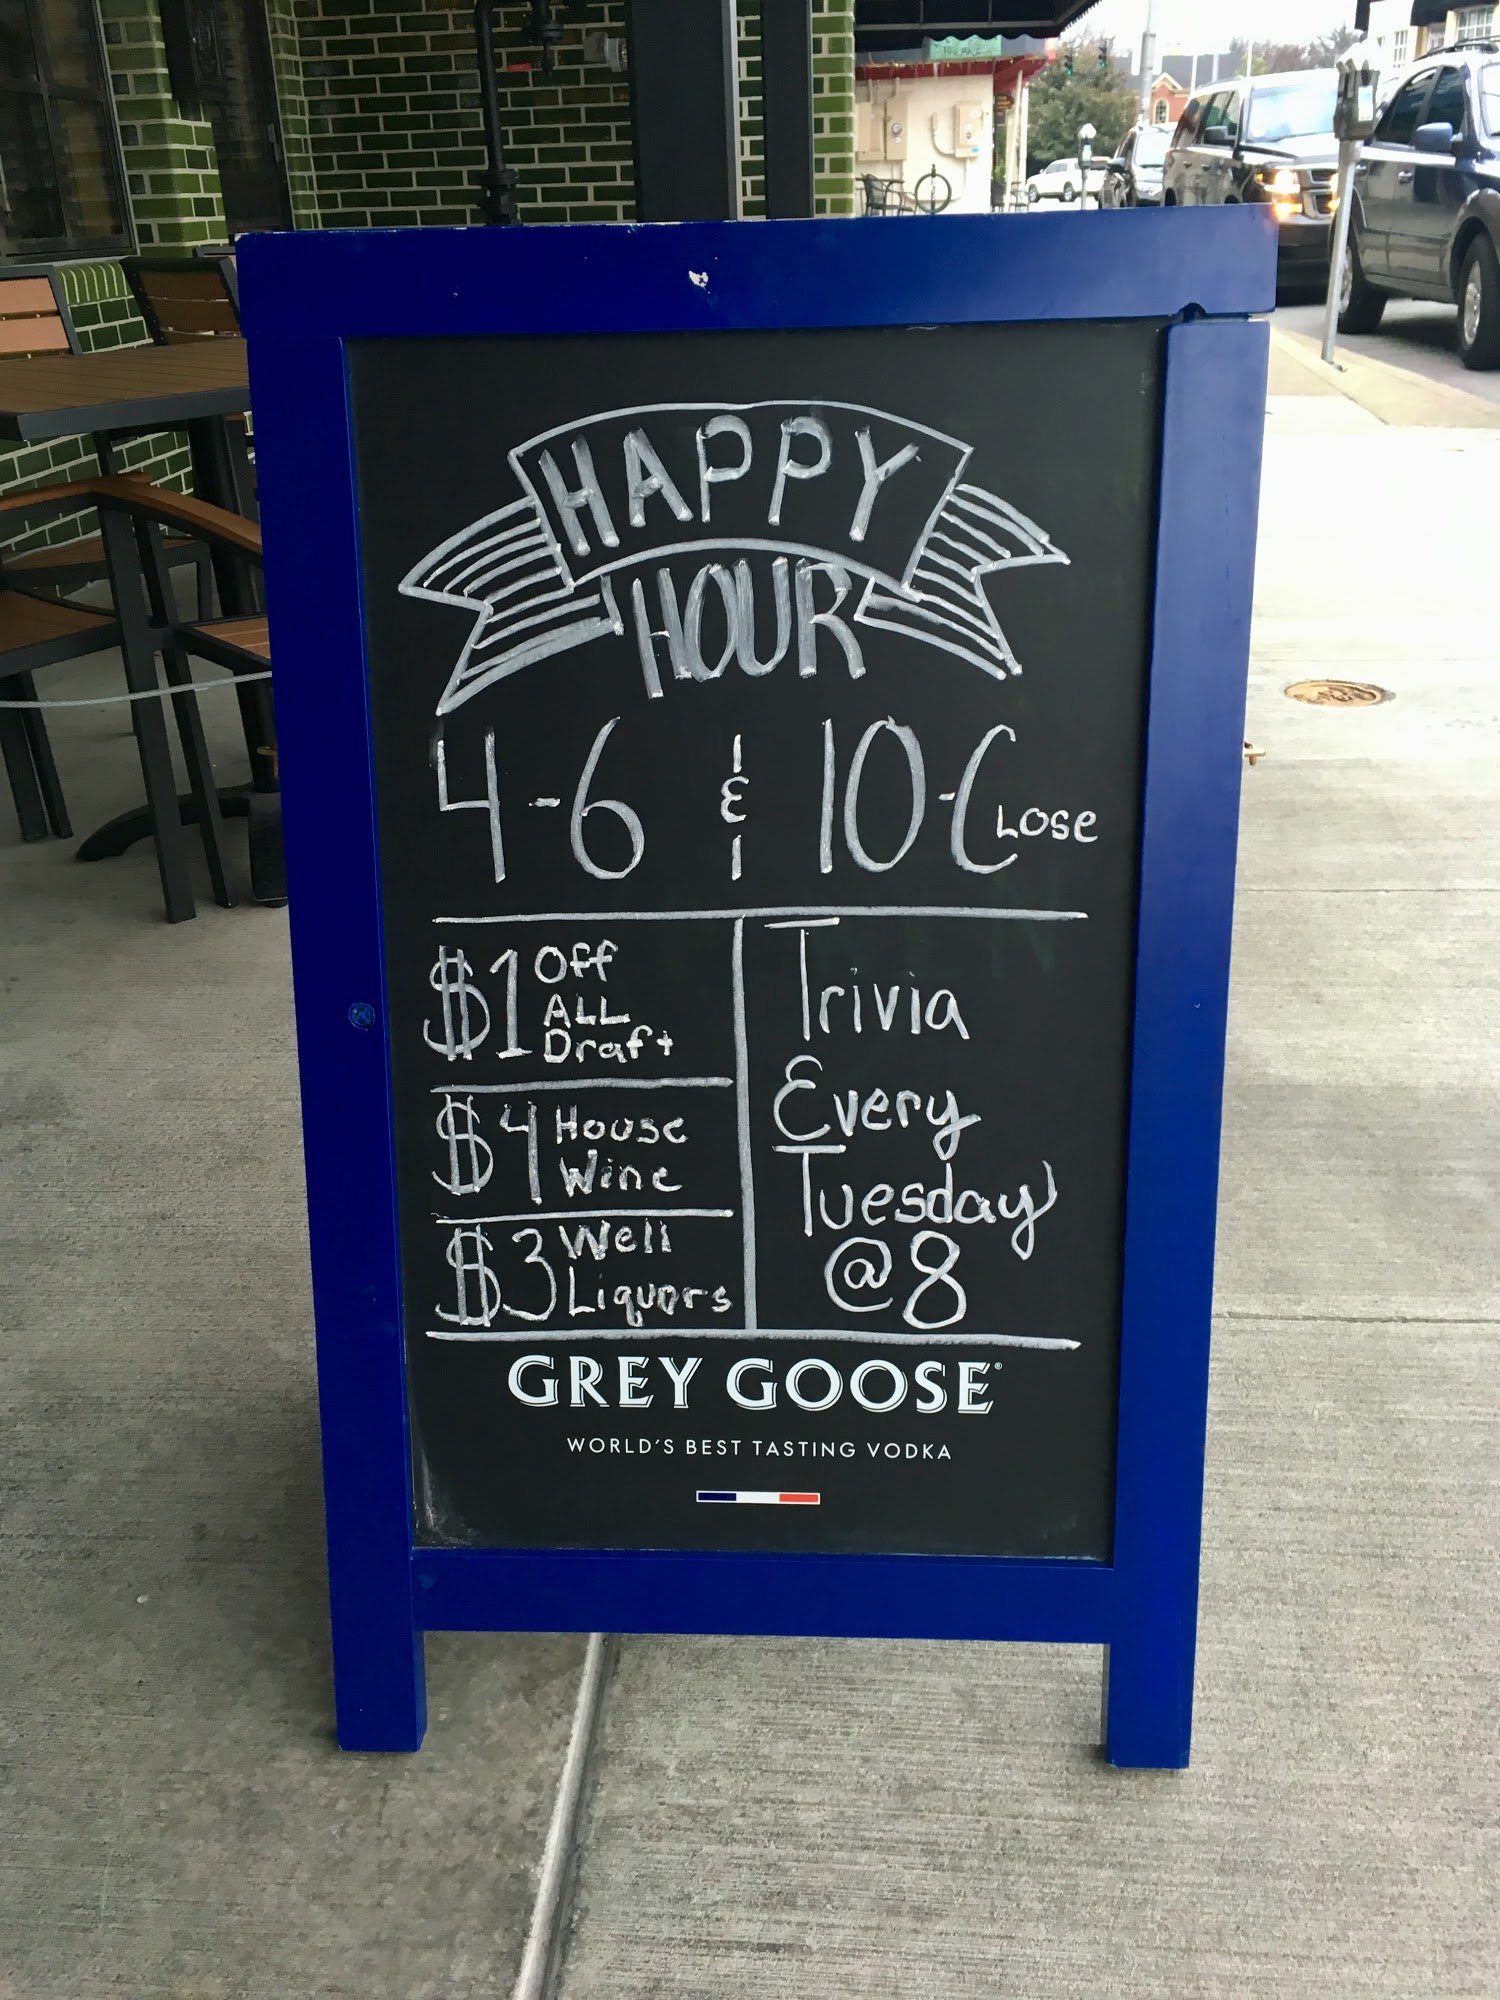 HAPPY
HOUR
4-6 & 10-CLOSE
$1 Off
ALL
Draft
$4 House
Wine
$3 Well
Liquors
Trivia
Every
Tuesday
@ 8
GREY GOOSE®
WORLD'S BEST TASTING VODKA